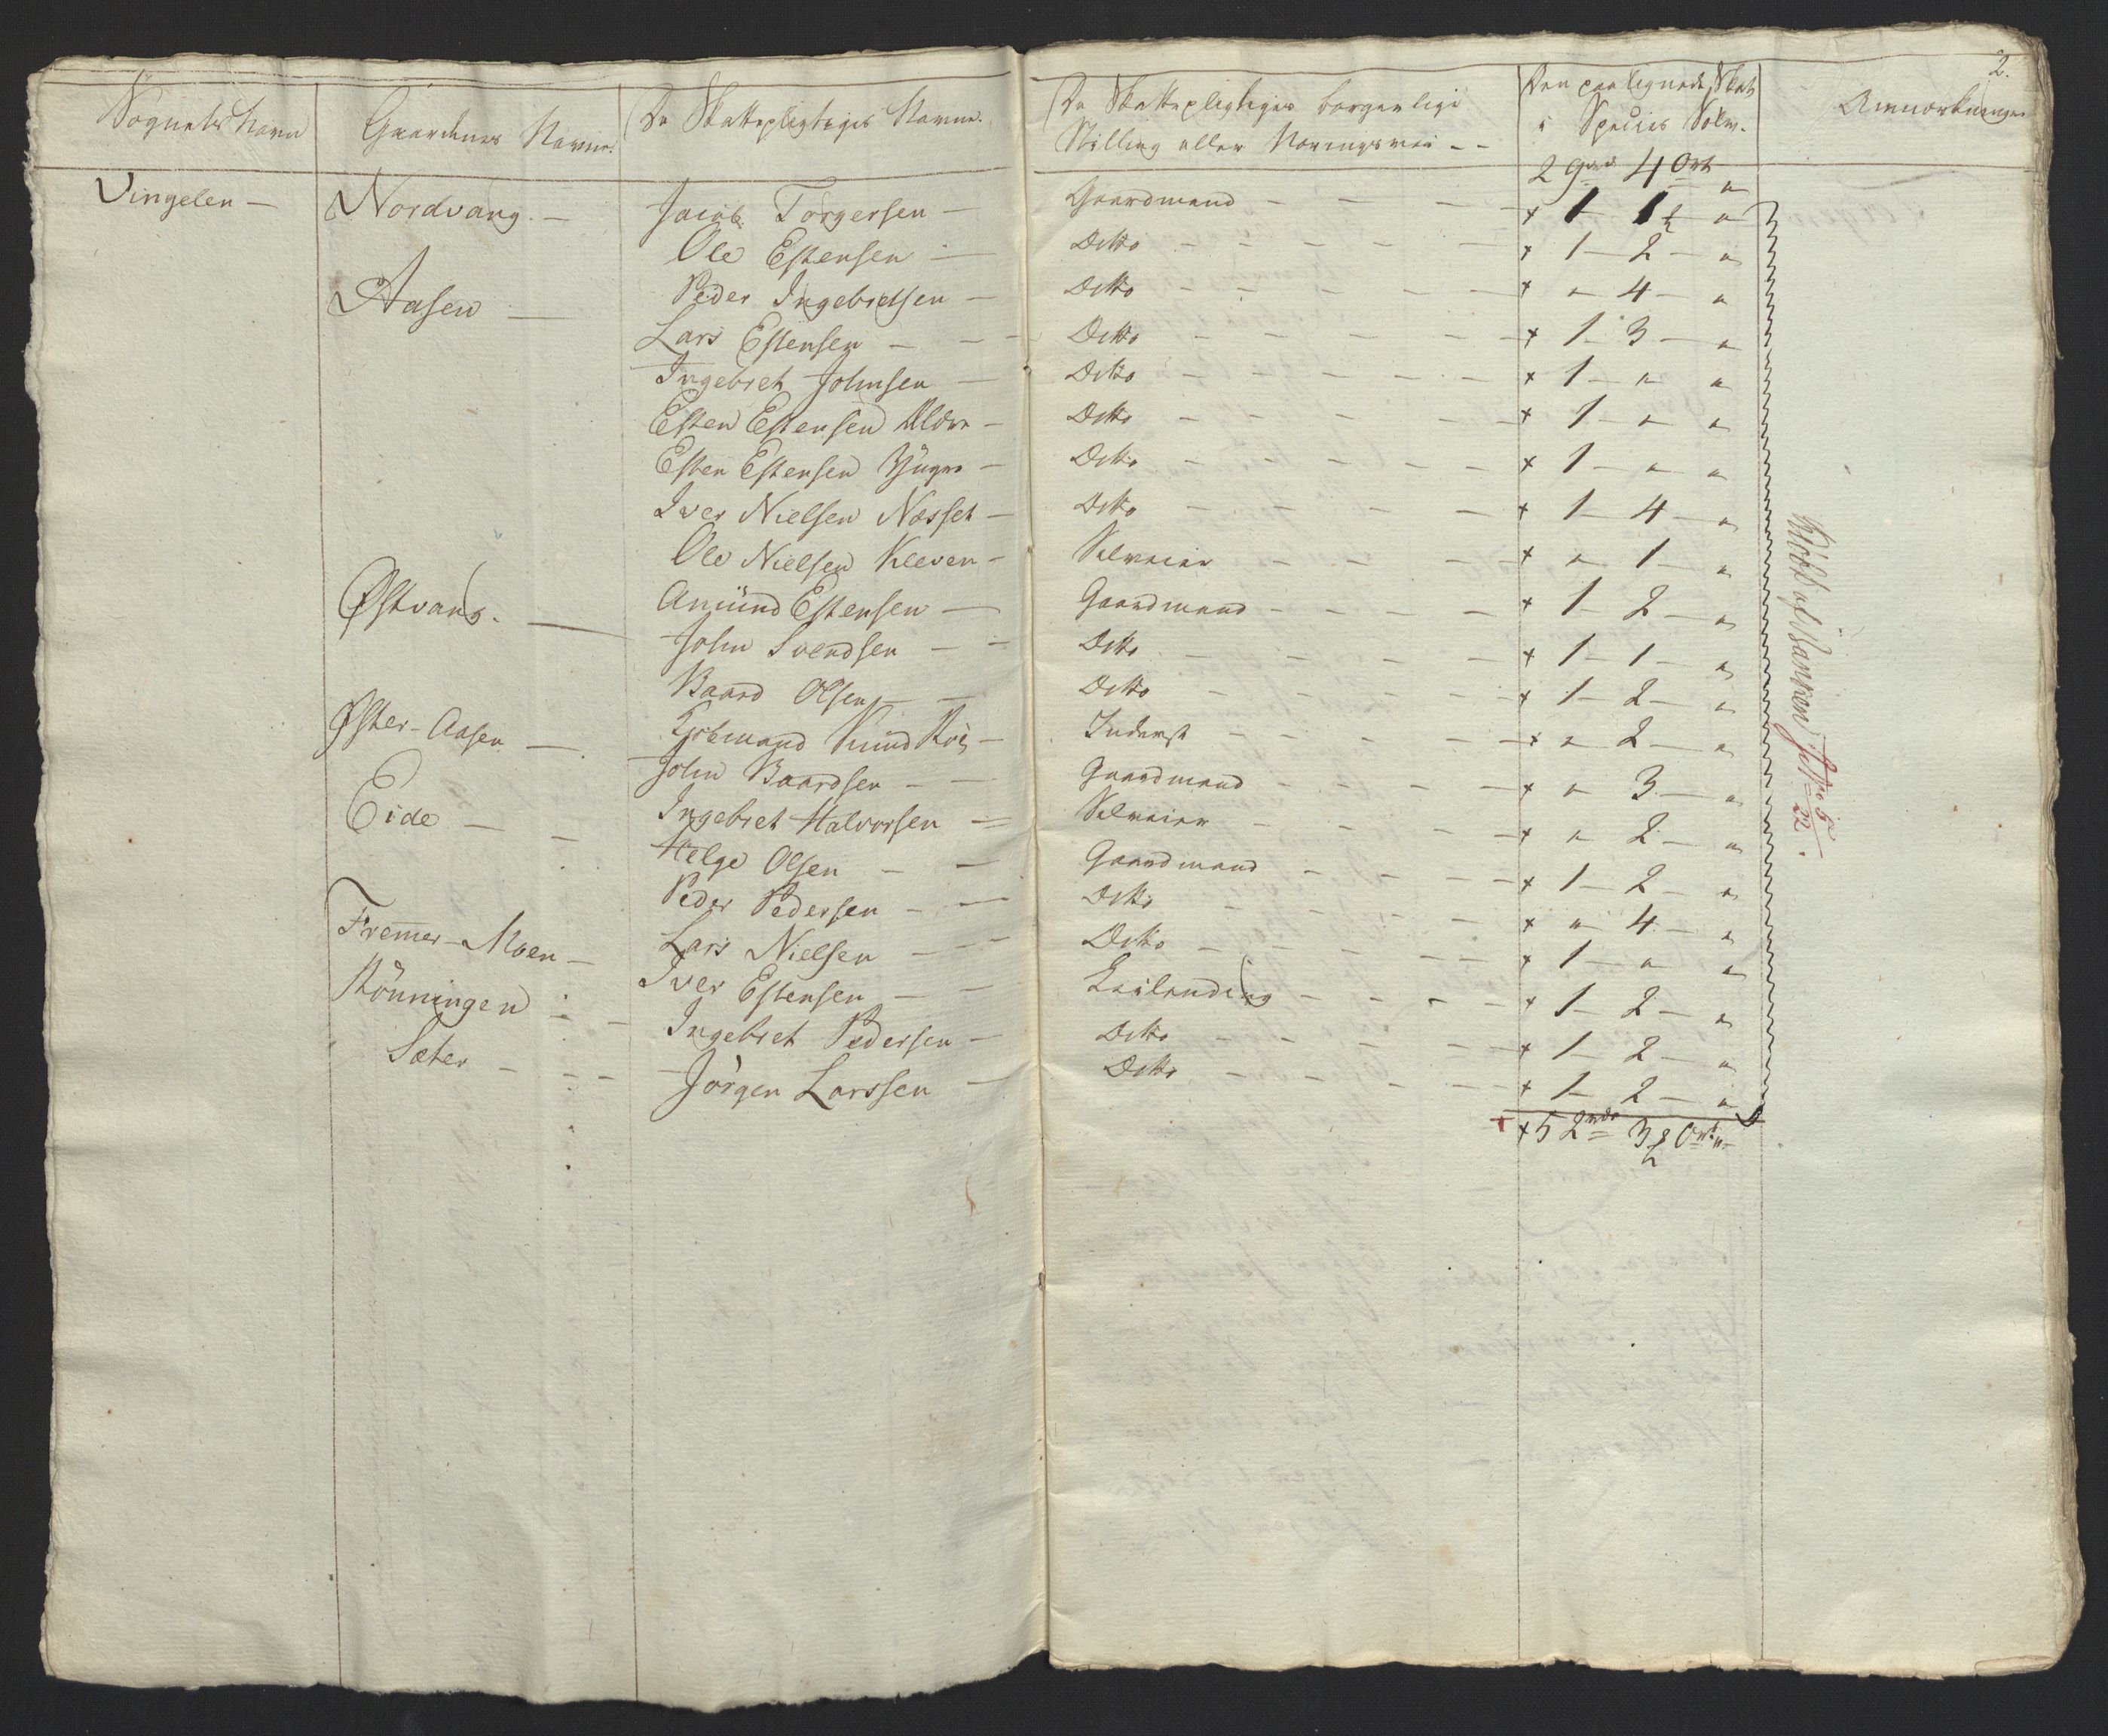 2.
Sognets Navn | Gaardenes Navne. | De Skattepligtiges Navne. | De Skattepligtiges borgerlige Stilling eller Næringsvei - - | Den paalignede Skat i Species Sølv. | Anmærkninger
Vingelen — | Nordvang. — | Jacob Torgersen — | Gaardmand — | 2 4 Ort "
Ole Estensen — | Ditto — | + 1 — 1½ — "
Aasen — | Peder Ingebretsen — | Ditto — | + 1 — 2 — "
Lars Estensen — | Ditto — | + " — 4 — "
Ingebret Johnsen — | Ditto — | + 1 — 3 — "
Esten Estensen Ældre — | Ditto — | + 1 — " — "
Esten Estensen Yngre — | Ditto — | + 1 — " — "
Iver Nielsen Nosset — | Ditto — | + 1 — " — "
Ole Nielsen Kleven — | Selveier — | + 1 — 4 — "
Østvang. — | Amund Estensen — | Gaardmand — | + " — 1 — "
John Svendsen — | Ditto — | + 1 — 2 — "
Baard Olsen — | Ditto — | + 1 — 1 — "
Øster-Aasen — | Knud — | Inderst — | + 1 — 2 — "
John Baardsen — | Gaardmand — | + " — 2 — "
Eide — | Ingebret Halvorsen — | Selveier — | + " — 3 — "
Helge Olsen — | Gaardmand — | + " — 2 — "
Peder Pedersen — | Ditto — | + 1 — 2 — "
Fremmer-Moen — | Lars Nielsen — | Ditto — | + " — 4 — "
Rönningen — | Iver Estensen — | Leilending — | + 1 — " — "
Ingebret Pedersen — | Ditto — | + 1 — 2 — "
Sæter — | Jörgen Larssen — | Ditto — | + 1 — 2 — "
+ 1 — 2 — "
3½ Ort "
af Banken